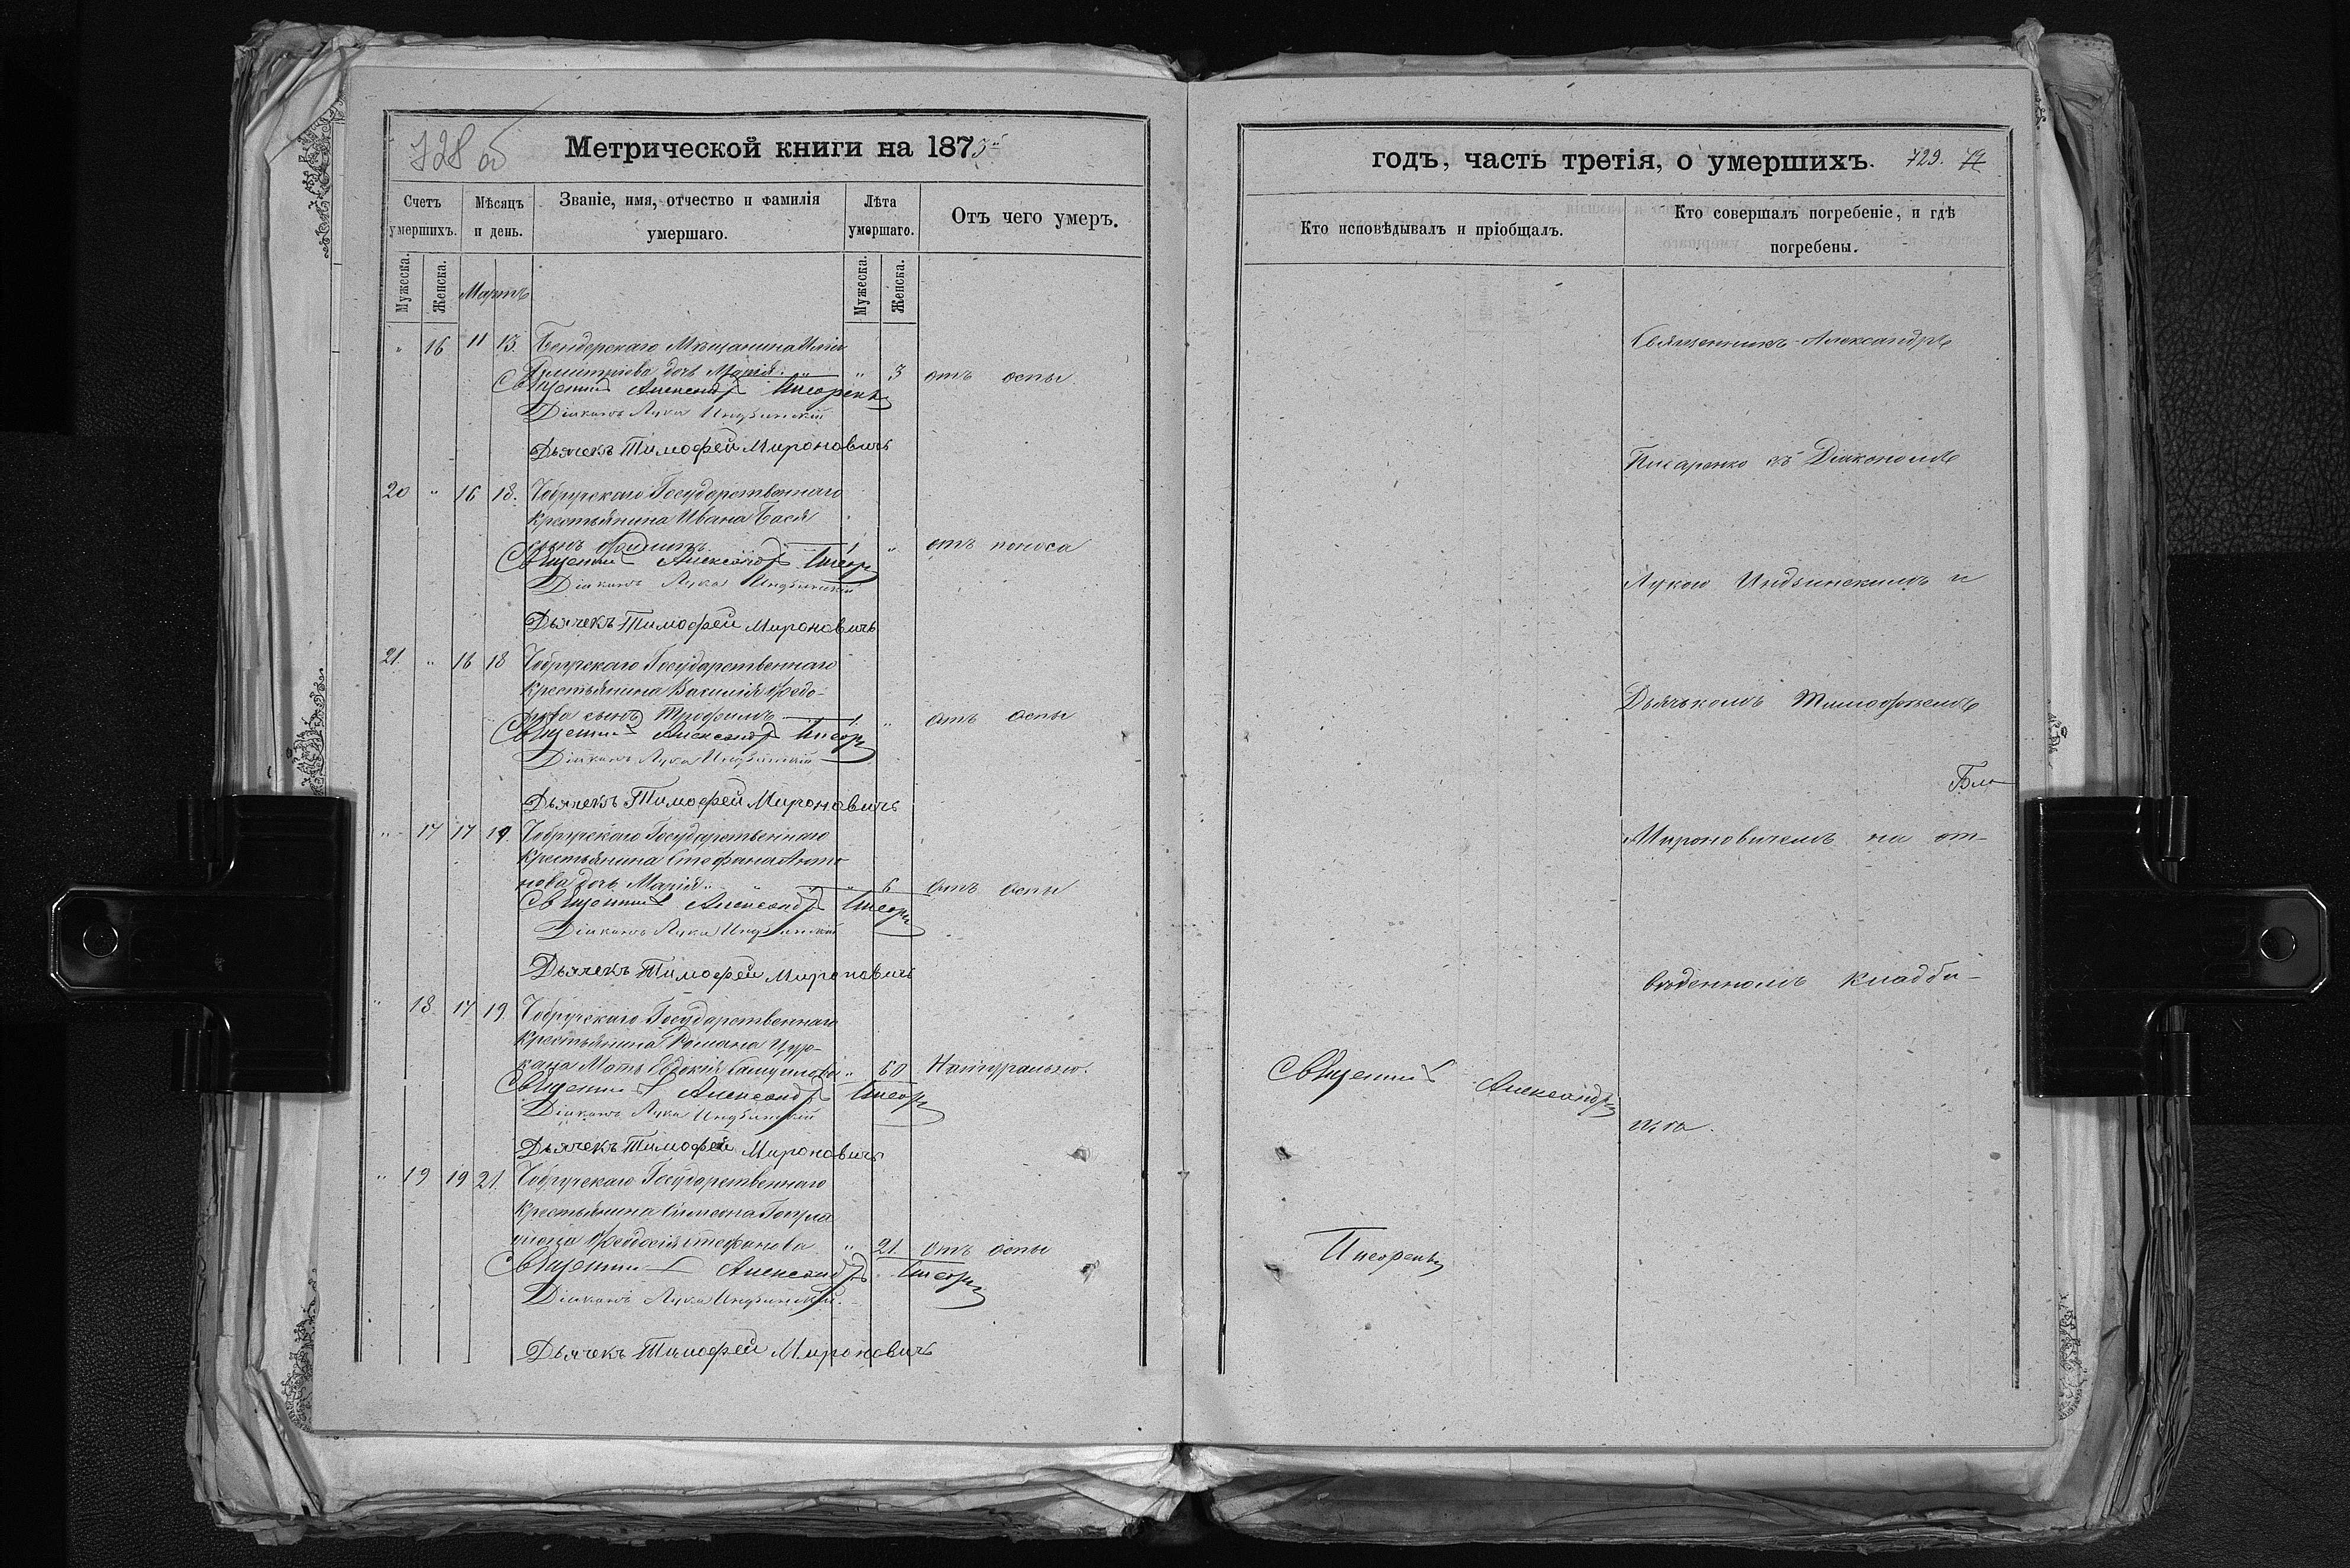 728 об
Метрической книги на 1873й
Счетъ умершихъ.
Мѣсяцъ и день.
Званіе, имя, отчество и фамилія умершаго.
Лѣта умершаго.
Отъ чего умеръ.
Мужеска.
Женска.
Мартъ
Мужеска.
Женска.
„ 16 11 13. Бендерскаго Мѣщанина Иліи
Димитріева дочь Марія „ „ 3 отъ оспы.
Священникъ Александръ Писаренко
Діаконъ Лука Индзинскій
Дьячекъ Тимофей Мироновичъ
20 „ 16 18. Чобручскаго Государственнаго
Крестьянина Ивана
сынъ Филипъ 1 „ отъ поноса
Священникъ Александръ Писар
Діаконъ Лука Индзинскій
Дьячекъ Тимофей Мироновичъ
21 „ 16 18 Чобручскаго Государственнаго
Крестьянина Василія Федо-
рова сынъ Трофимъ 1. „ отъ оспы
Священникъ Александръ Писар
Діаконъ Лука Индзинскій
Дьячекъ Тимофей Мироновичъ
„ 17 17 19. Чобручскаго Государственнаго
Крестьянина Стефана Анто-
нова дочь Марія „ „ 6 отъ оспы
Священникъ Александръ Писар
Діаконъ Лука Индзинскій
Дьячекъ Тимофей Мироновичъ
„ 18 17 19 Чобручскаго Государственнаго
Крестьянина Романа Цур-
кана Мать Евдокія „ 60 Натурально.
Священникъ Александръ Писар
Діаконъ Лука Индзинскій
Дьячекъ Тимофей Мироновичъ
„ 19 19 21. Чобручскаго Государственнаго
Крестьянина Симеона
жена Феодосія Стефанова „ 21. отъ оспы
Священникъ Александръ Писар
Діаконъ Лука Индзинскій.
Дьячекъ Тимофей Мироновичъ
годъ, часть третія, о умершихъ. 729.
Кто исповѣдывалъ и пріобщалъ.
Кто совершалъ погребеніе, и гдѣ погребены.
Священникъ Александръ
Писаренко
Священникъ Александръ
Писаренко съ Діакономъ
Лукою Индзинскимъ и
Дьячкомъ Тимофеемъ
Мироновичемъ на от-
веденномъ кладби-
ща.